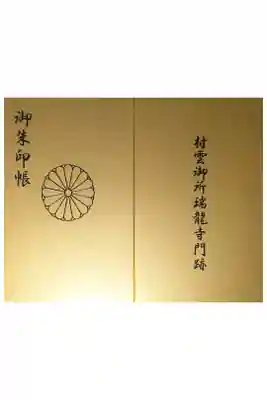 村雲御所瑞龍寺門跡
御朱印帳